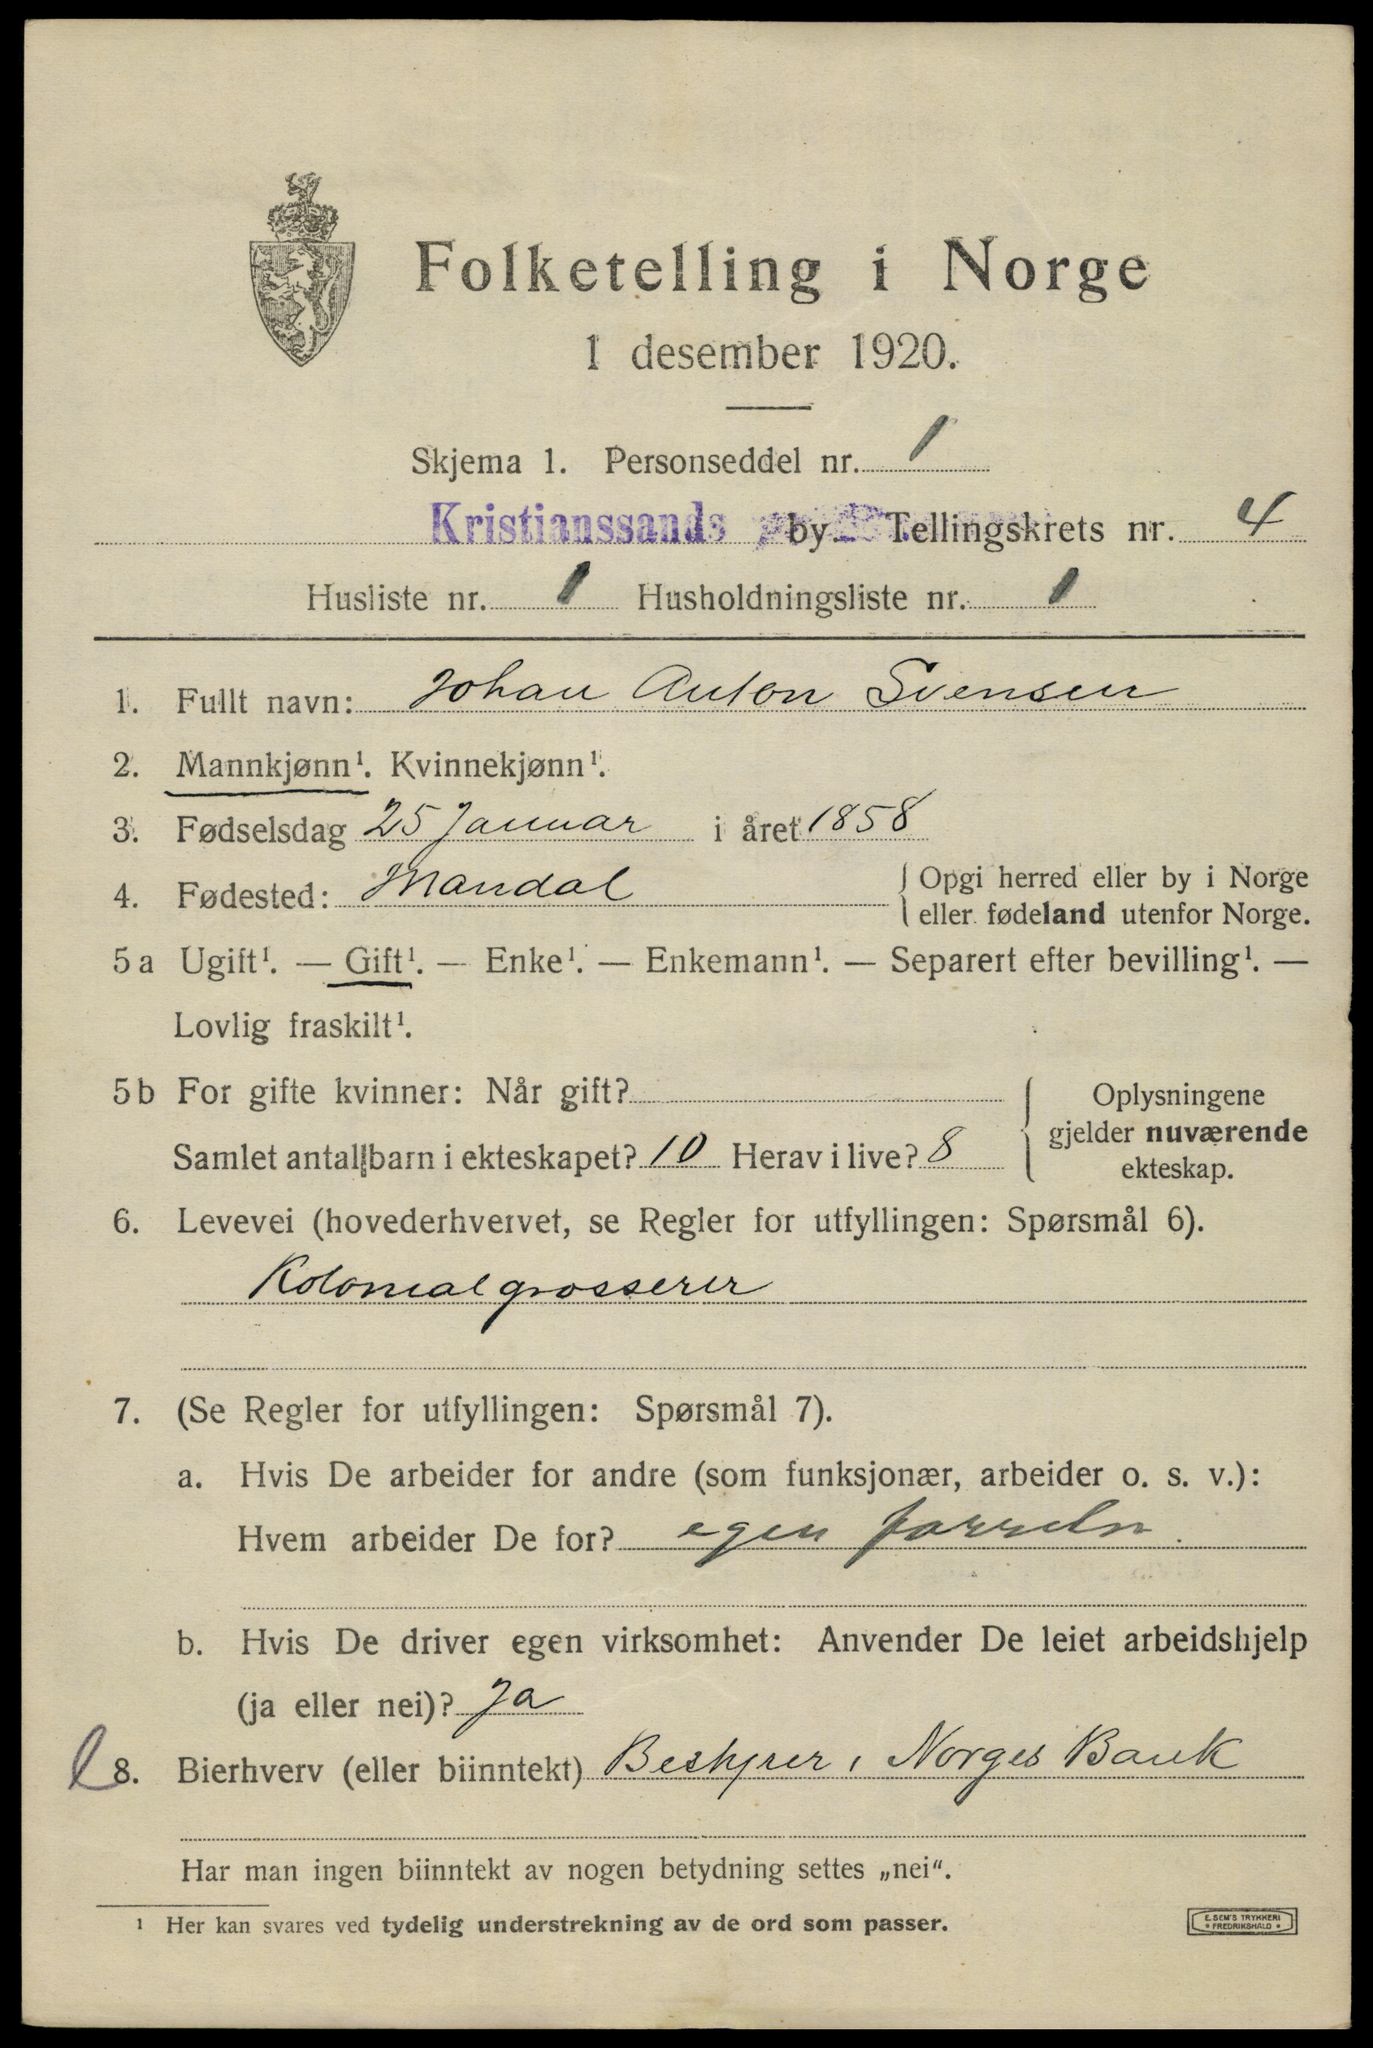 Folketelling i Norge
1 desember 1920.
Skjema 1. Personseddel nr. 1
Kristianssands by. Tellingskrets nr. 4
Husliste nr. 1 Husholdningsliste nr. 1
1. Fullt navn: Johan Anton Svensen
2. Mannkjønn¹. Kvinnekjønn¹.
3. Fødselsdag 25 Januar i året 1858
4. Fødested: Mandal { Opgi herred eller by i Norge
eller fødeland utenfor Norge.
5 a Ugift¹. — Gift¹. — Enke¹. — Enkemann¹. — Separert efter bevilling¹. —
Lovlig fraskilt¹.
5 b For gifte kvinner: Når gift?
Samlet antal barn i ekteskapet? 10 Herav i live? 8
Oplysningene
gjelder nuværende
ekteskap.
6. Levevei (hovederhvervet, se Regler for utfyllingen: Spørsmål 6).
Kolonialgrosserer
7. (Se Regler for utfyllingen: Spørsmål 7).
a. Hvis De arbeider for andre (som funksjonær, arbeider o. s. v.):
Hvem arbeider De for? egen
b. Hvis De driver egen virksomhet: Anvender De leiet arbeidshjelp
(ja eller nei)? Ja
8. Bierhverv (eller biinntekt) Bestyrer i Norges Bank
Har man ingen biinntekt av nogen betydning settes „nei“.
¹ Her kan svares ved tydelig understrekning av de ord som passer.
E. SEM'S TRYKKERI
* FREDRIKSHALD *